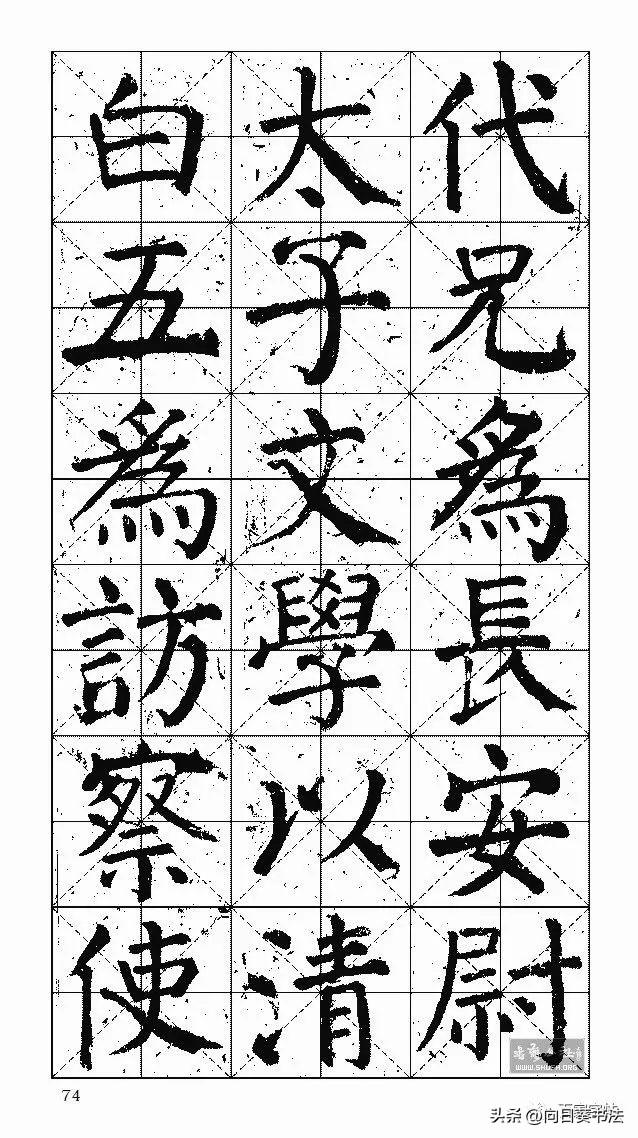 代兄為長安尉
太子文學以清
白五為訪察使
74
WWW.SHUFA.ORG
头条 @向日葵书法